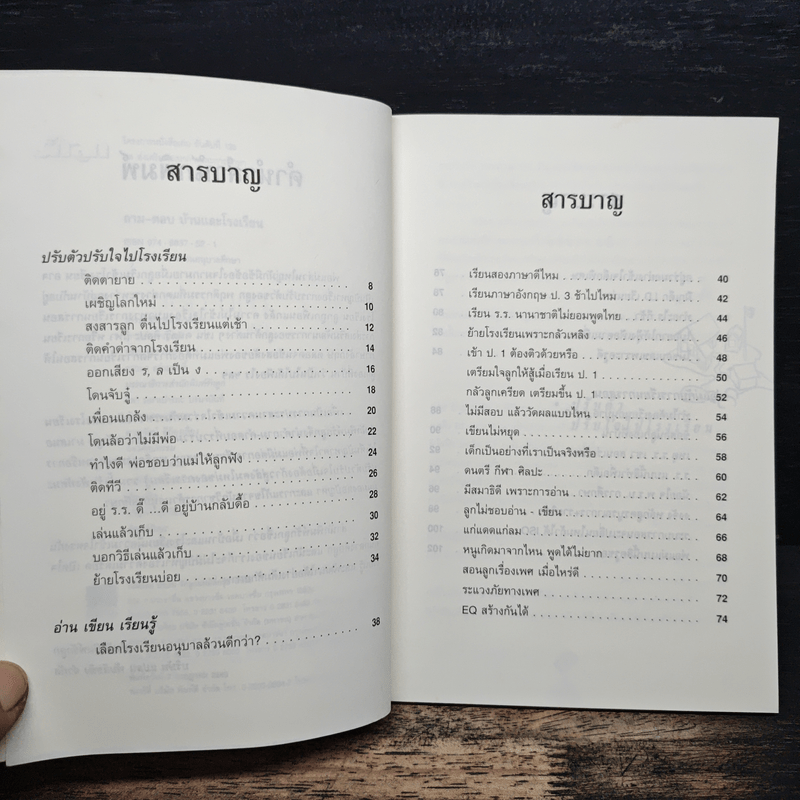 สารบาญ
ปรับตัวปรับใจไปโรงเรียน
ติดตายาย 8
เผชิญโลกใหม่ 10
สงสารลูก ตื่นไปโรงเรียนแต่เช้า 12
ติดคำด่าจากโรงเรียน 14
ออกเสียง ร, ล เป็น ง 16
โดนจับจู๋ 18
เพื่อนแกล้ง 20
โดนล้อว่าไม่มีพ่อ 22
ทำไงดี พ่อชอบว่าแม่ให้ลูกฟัง 24
ติดทีวี 26
อยู่ ร.ร. ดี๊ ...ดี อยู่บ้านกลับดื้อ 28
เล่นแล้วเก็บ 30
บอกวิธีเล่นแล้วเก็บ 32
ย้ายโรงเรียนบ่อย 34
อ่าน เขียน เรียนรู้
เลือกโรงเรียนอนุบาลล้วนดีกว่า? 38
สารบาญ
เรียนสองภาษาดีไหม 40
เรียนภาษาอังกฤษ ป. 3 ช้าไปไหม 42
เรียน ร.ร. นานาชาติไม่ยอมพูดไทย 44
ย้ายโรงเรียนเพราะกลัวเหลิง 46
เข้า ป. 1 ต้องติวด้วยหรือ 48
เตรียมใจลูกให้สู้เมื่อเรียน ป. 1 50
กลัวลูกเครียด เตรียมขึ้น ป. 1 52
ไม่มีสอบ แล้ววัดผลแบบไหน 54
เขียนไม่หยุด 56
เด็กเป็นอย่างที่เราเป็นจริงหรือ 58
ดนตรี กีฬา ศิลปะ 60
มีสมาธิดี เพราะการอ่าน 62
ลูกไม่ชอบอ่าน - เขียน 64
แก่แดดแก่ลม 66
หนูเกิดมาจากไหน พูดได้ไม่ยาก 68
สอนลูกเรื่องเพศ เมื่อไหร่ดี 70
ระแวงภัยทางเพศ 72
EQ สร้างกันได้ 74